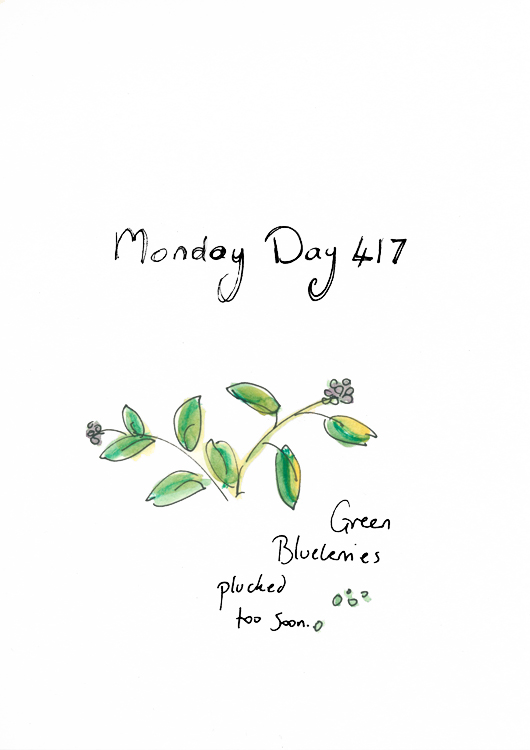 Monday Day 417
Green
Blueberries
plucked
too soon.